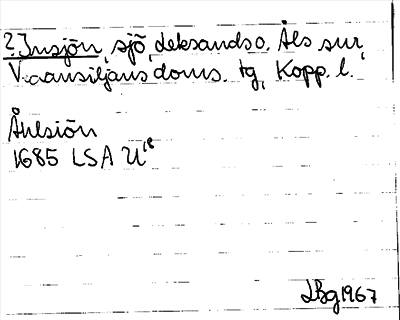 2. Insjön, sjö, Leksands o. Åls snr,
V. ansiljans doms. tg, Kopp. l.
Åhlsiön
1685 LSA U18
LBg 1967